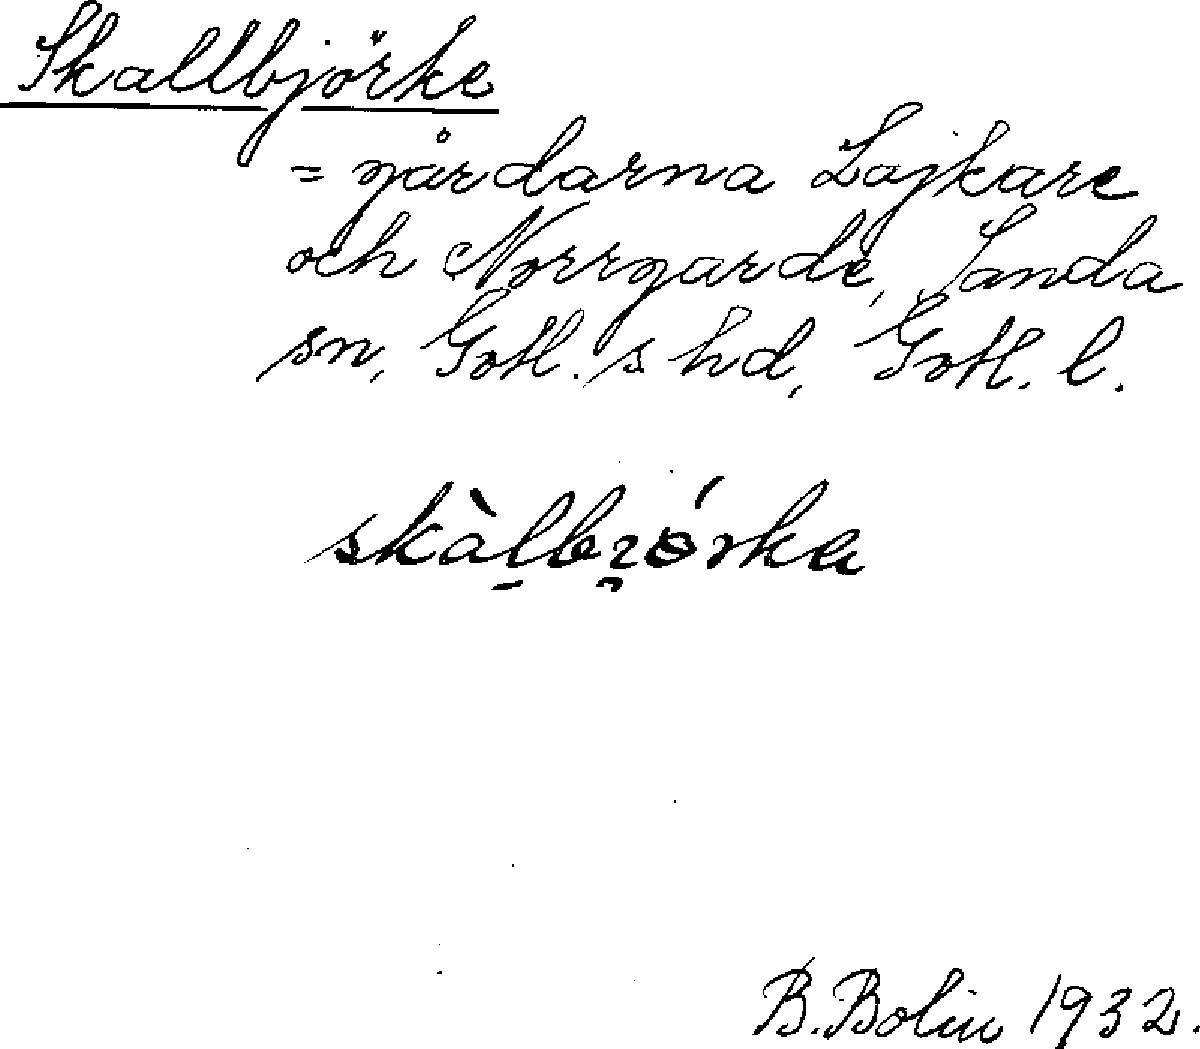 Skallbjörke
= gårdarna Lajkare
och Norrgarde, Sanda
sn, Gotl. s hd, Gotl. l.
B. Bolin 1932.